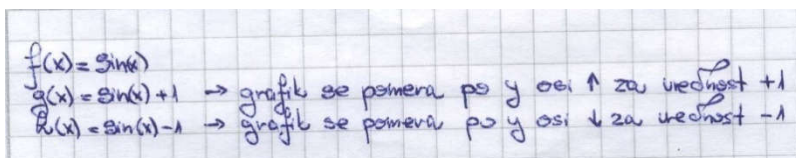 f(x) = sin(x)
g(x) = sin(x) + 1 → grafik se pomera po y osi ↑ za vrednost +1
h(x) = sin(x) - 1 → grafik se pomera po y osi ↓ za vrednost -1